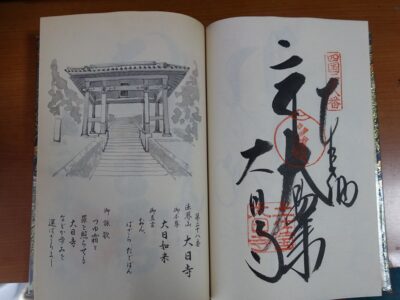 四国二十八番
奉納
大日寺
第二十八番
法界山 大日寺
御本尊
大日如来
御真言
おん
ばざら だどばん
御詠歌
つゆ霜と
罪を照らせる
大日寺
などか歩みを
運ばざらまし